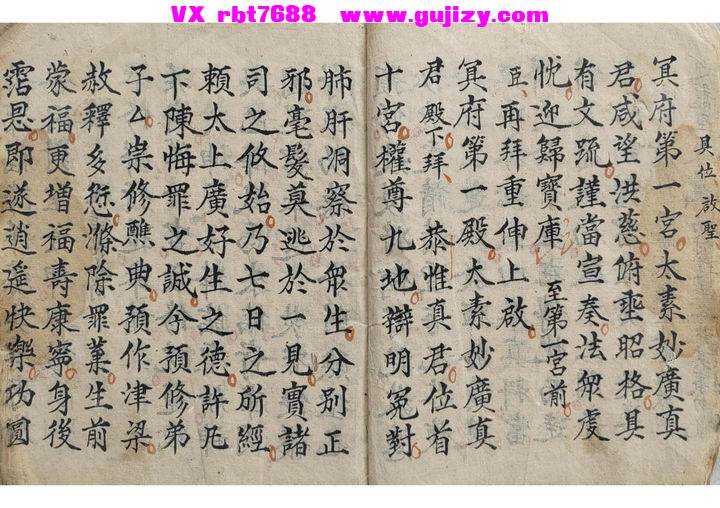 VX rbt7688 www.gujizy.com
具位啟聖
冥府第一宮太素妙廣真
君咸望洪慈俯垂昭格具
有文疏謹當宣奏法衆虔
忱迎歸寶庫 至第一宮前
再拜重伸上啟
冥府第一殿太素妙廣真
君殿下拜 恭惟真君位首
十宮權尊九地辯明冤對
肺肝洞察於衆生分別正
邪毫髮莫逃於一見實諸
司之攸始乃七日之所經
賴太上廣好生之德許凡
下陳悔罪之誠今預修弟
子厶祟修醮典預作津梁
赦釋多愆滌除罪菓生前
蒙福更增福壽康寧身後
霑恩即遂逍遥快樂功圓